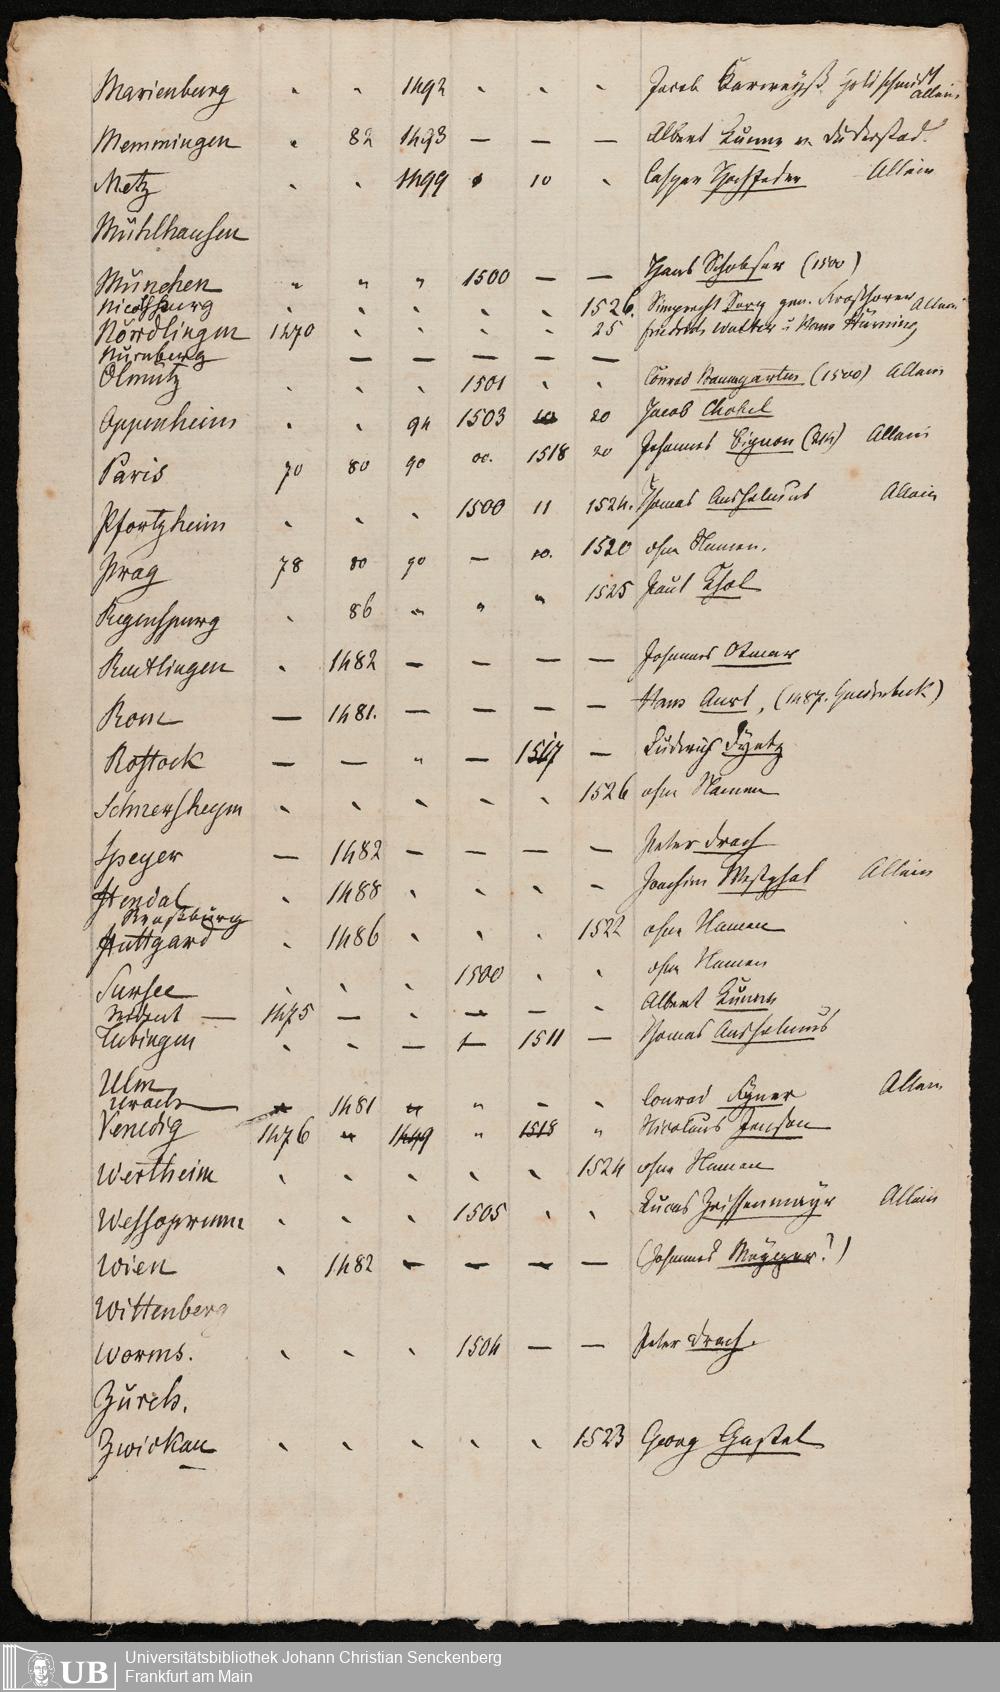 Marienburg " " 1492 " " " Jacob Karweyß Goldschmidt Allein
Memmingen " 82 1493 — — — Albert Kunne v. Duderstad.
Metz " " 1499 10 " Caspar Hochfeder Allein
Mühlhausen
München " " " 1500 — — Hans Schobser (1500)
Nicolsburg " " " " " 1526. Simprecht Sorg gen. Froschover Allein
Nördlingen 1470 " " " " 25 Hans
Nürnberg — — — — —
Olmütz " " " 1501 " " Conrad Baumgarten (1500) Allein
Oppenheim " " 94 1503 10 20 Jacob Köbel
Paris 70 80 90 00. 1518 20 Johannes Bignon Allein
Pfortzheim " " " 1500 11 1524. Thomas Anshelmus Allein
Prag 78 80 90 — 10. 1520 ohne Namen.
Regenspurg " 86 " " " 1525 Paul Khol
Reutlingen " 1482 — — — — Johannes Otmar
Rom — 1481. — — — — Hans Aurl, (1487. Guldenbeck)
Rostock — — " — 1517 — Ludwig Dyetz
Schmersheym " " " " " 1526 ohne Namen
Speyer — 1482 — — — — Peter Drach
Stendal " 1488 " " " " Joachim Westphal Allein
Strasburg
Stuttgard " 1486 " " " 1522 ohne Namen
Sursee " " " 1500 " " ohne Namen
Trident — 1475 — " — — " Albert Kunne
Tübingen " " — — 1511 — Thomas Anshelmus
Ulm
Urach 1481 " " — " Conrad Fyner Allein
Venedig 1476 " 1449 " 1518 " Nicolaus Jenson
Wertheim " " " " " 1524 ohne Namen
Wessoprunn " " " 1505 " " Lucas Zeissenmayr Allein
Wien " 1482 — — — — (Johannes ?)
Wittenberg
Worms. " " " 1504 — — Peter Drach.
Zürch.
Zwickau " " " " " 1523 Georg Gastel
Universitätsbibliothek Johann Christian Senckenberg
UB Frankfurt am Main